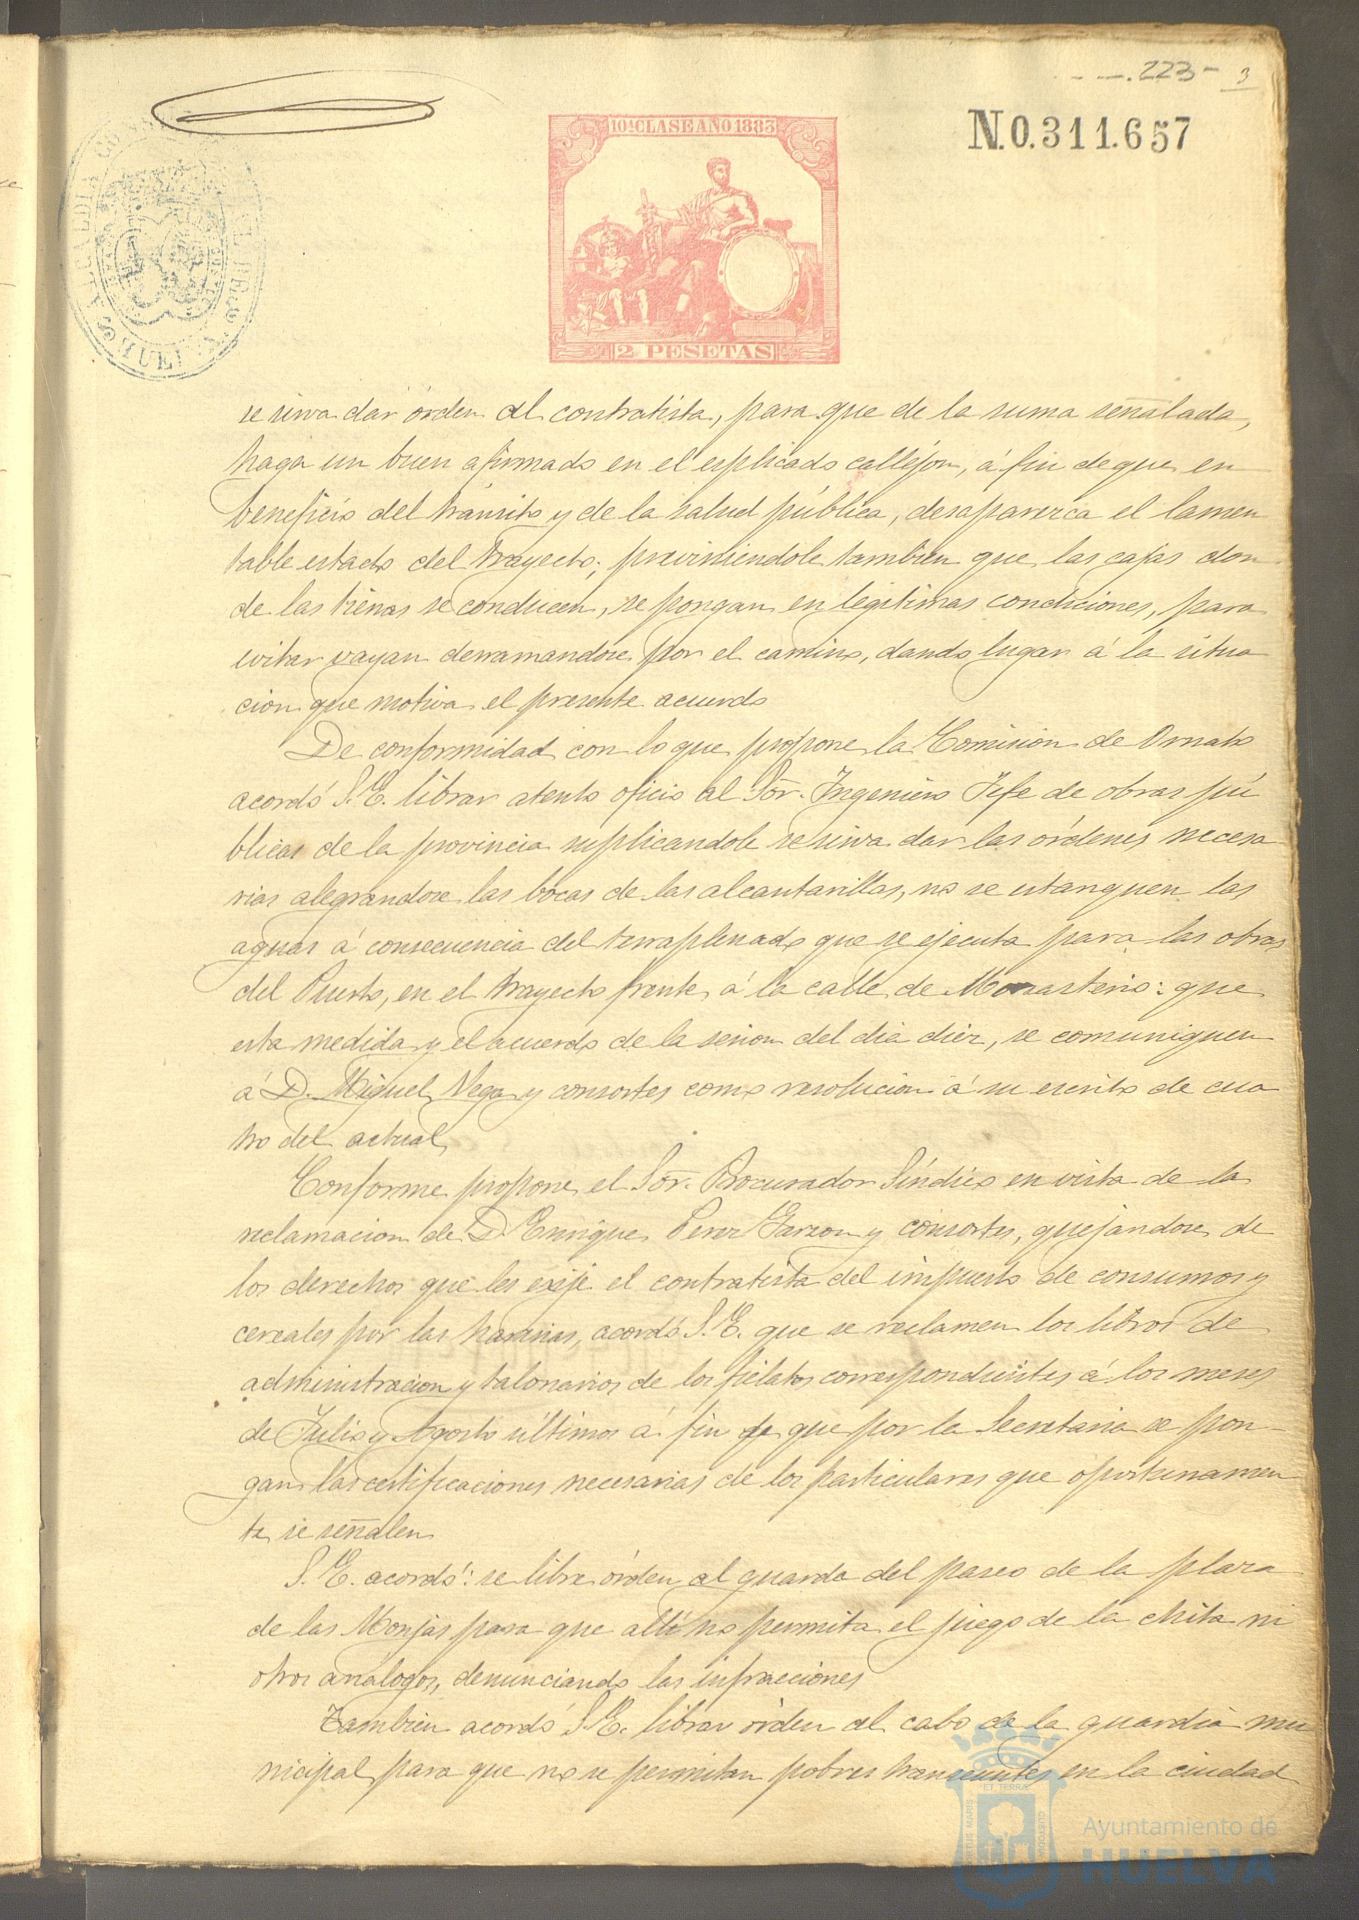 223- 3
N.0.311.657
10ª CLASE AÑO 1883
2 PESETAS
ALCALDIA CONS
HUELVA
se sirva dar órden al contratista, para que de la suma señalada,
haga un buen afirmado en el esplicado callejon, á fin de que en
beneficio del tránsito y de la salud pública, desaparezca el lamen
table estado del trayecto; previniendole tambien que las cajas don
de las tierras se conducen, se pongan en legítimas condiciones, para
evitar vayan derramandose por el camino, dando lugar á la situa
cion que motiva el presente acuerdo
De conformidad con lo que propone la Comision de Ornato
acordó S.E. librar atento oficio al Sõr. Ingeniero Jefe de obras pú
blicas de la provincia suplicandole se sirva dar las órdenes necesa
rias alegrandose las bocas de las alcantarillas, no se estanquen las
aguas á consecuencia del terraplenado que se ejecuta para las obras
del Puerto, en el trayecto frente á la calle de Monasterio: que
esta medida y el acuerdo de la sesion del dia diez, se comuniquen
á D. Miguel Vega y consortes como resolucion á su escrito de cua
tro del actual
Conforme propone el Sõr. Procurador Síndico en vista de la
reclamacion de D Enrique Perez Garzon y consortes, quejandose de
los derechos que les exije el contratista del impuesto de consumos y
cereales por las harinas, acordó S.E. que se reclamen los libros de
administracion y talonarios de los fielatos correspondientes á los meses
de Julio y Agosto últimos á fin de que por la Secretaria se pon-
gan las certificaciones necesarias de los particulares que oportunamen
te se señalen
S.E. acordó: se libre órden al guarda del paseo de la plaza
de las Monjas para que allí no permita el juego de la chita ni
otros análogos, denunciando las infracciones
Tambien acordó S.E. librar órden al cabo de la guardia mu
nicipal para que no se permitan pobres transeuntes en la ciudad
Ayuntamiento de
HUELVA